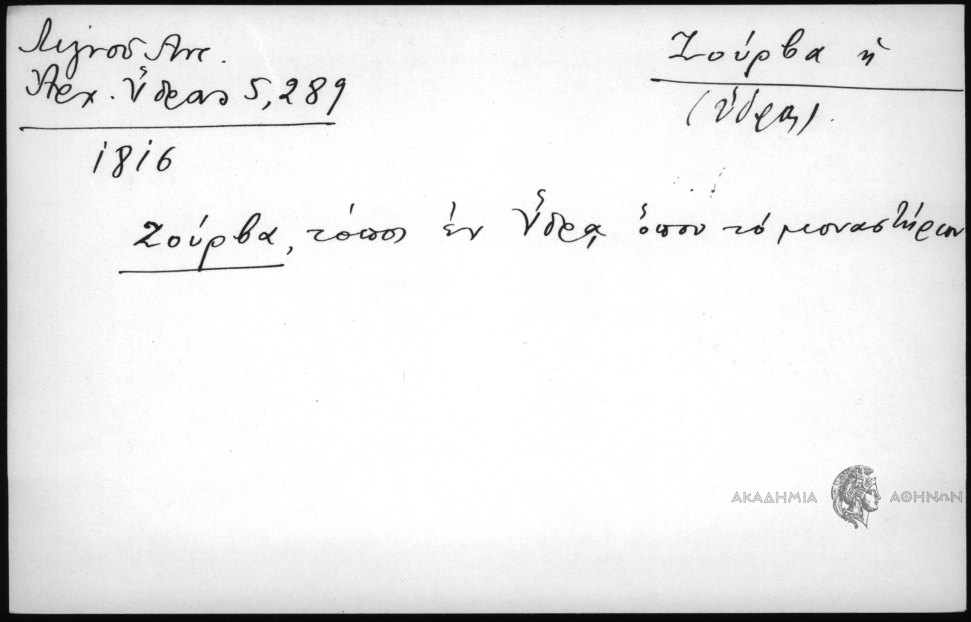 Λιγνοῦ Ἀντ.
Ἀρχ. Ὕδρας 5, 289
1816
Ζούρβα ἡ
(Ὕδρας).
Ζούρβα, τόπος ἐν Ὕδρᾳ ὅπου τό μοναστήριον
ΑΚΑΔΗΜΙΑ ΑΘΗΝΩΝ